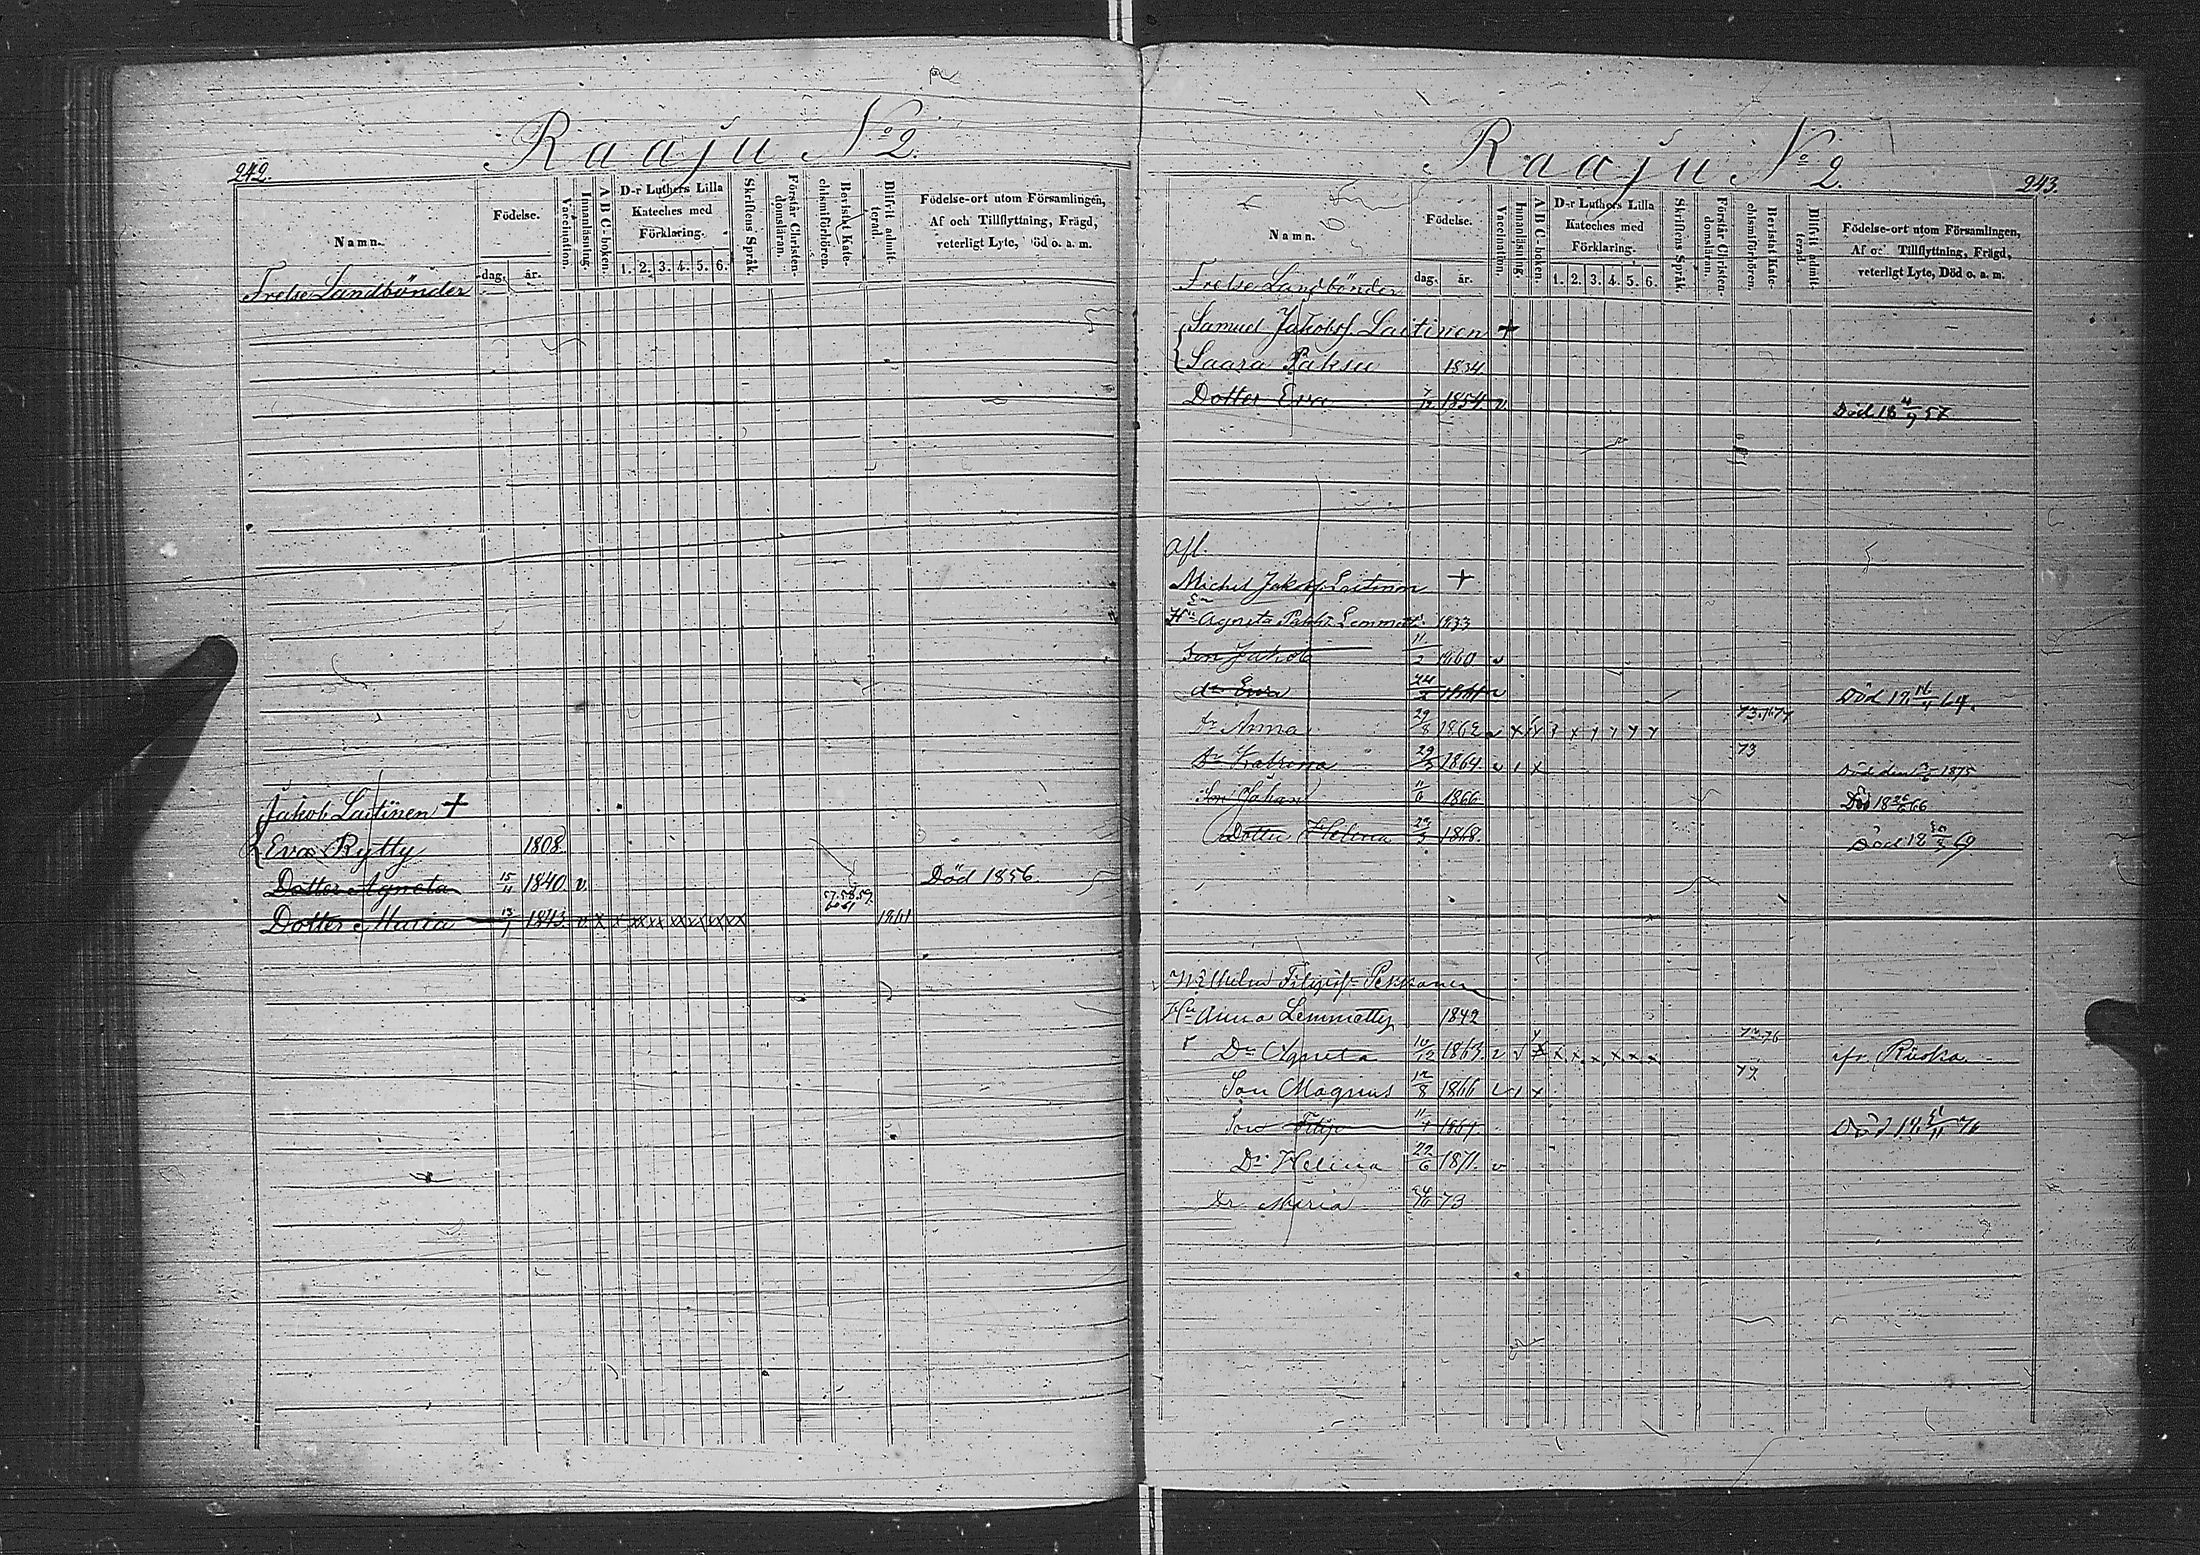 Raaju No 2.
242.
Namn.
Födelse.
dag. år.
Vaccination.
Innanläsning.
A B C-boken.
D-r Luthers Lilla
Kateches med
Förklaring.
1. 2. 3. 4. 5. 6.
Skriftens Språk.
Förstår Christen-
domsläran.
Bevistat Kate-
chismiförhören.
Blifvit admit-
terad.
Födelse-ort utom Församlingen,
Af och Tillflyttning, Frägd,
veterligt Lyte, Död o. a. m.
Frelse Landbönder
Jakob Laitinen +
Eva Rytty 1808
Dotter Agneta 15/11 1840 v. Död 1856.
Dotter Maria 13/1 1843. v x x xx xx xx xx xx x 57.58.59. 60 61 1861
Raaju No 2.
243.
Namn.
Födelse.
dag. år.
Vaccination.
Innanläsning.
A B C-boken.
D-r Luthers Lilla
Kateches med
Förklaring.
1. 2. 3. 4. 5. 6.
Skriftens Språk.
Förstår Christen-
domsläran.
Bevistat Kate-
chismiförhören.
Blifvit admit-
terad.
Födelse-ort utom Församlingen,
Af och Tillflyttning, Frägd,
veterligt Lyte, Död o. a. m.
Frelse Landbönder
Samuel Jakobsf. Laitinen +
Saara Paksu 1834
Dotter Eva 1854 v. Död 18 57
Afl.
Michel Jakobsf Laitinen +
Hu Agneta 1833
Son Jakob 11/2 1860 v
dr Eva 1861 v Död 18 64.
Dr Anna 29/8 1862 v
Dr Katrina 29/3 1864. v 1 x 73 Död den 1875
Son Johan 11/6 1866 Död 18 66
Dotter Helena 23/3 1868. Död 18 69
Wilhelm Filipsf Pekkanen
Hu Anna Lemmetty 1842
Dr Agneta 10/12 1863. v x x x x x x
Son Magnus 12/8 1866 77
Son Filip
Dr Helena 22/6 1871. v
Dr Maria 73